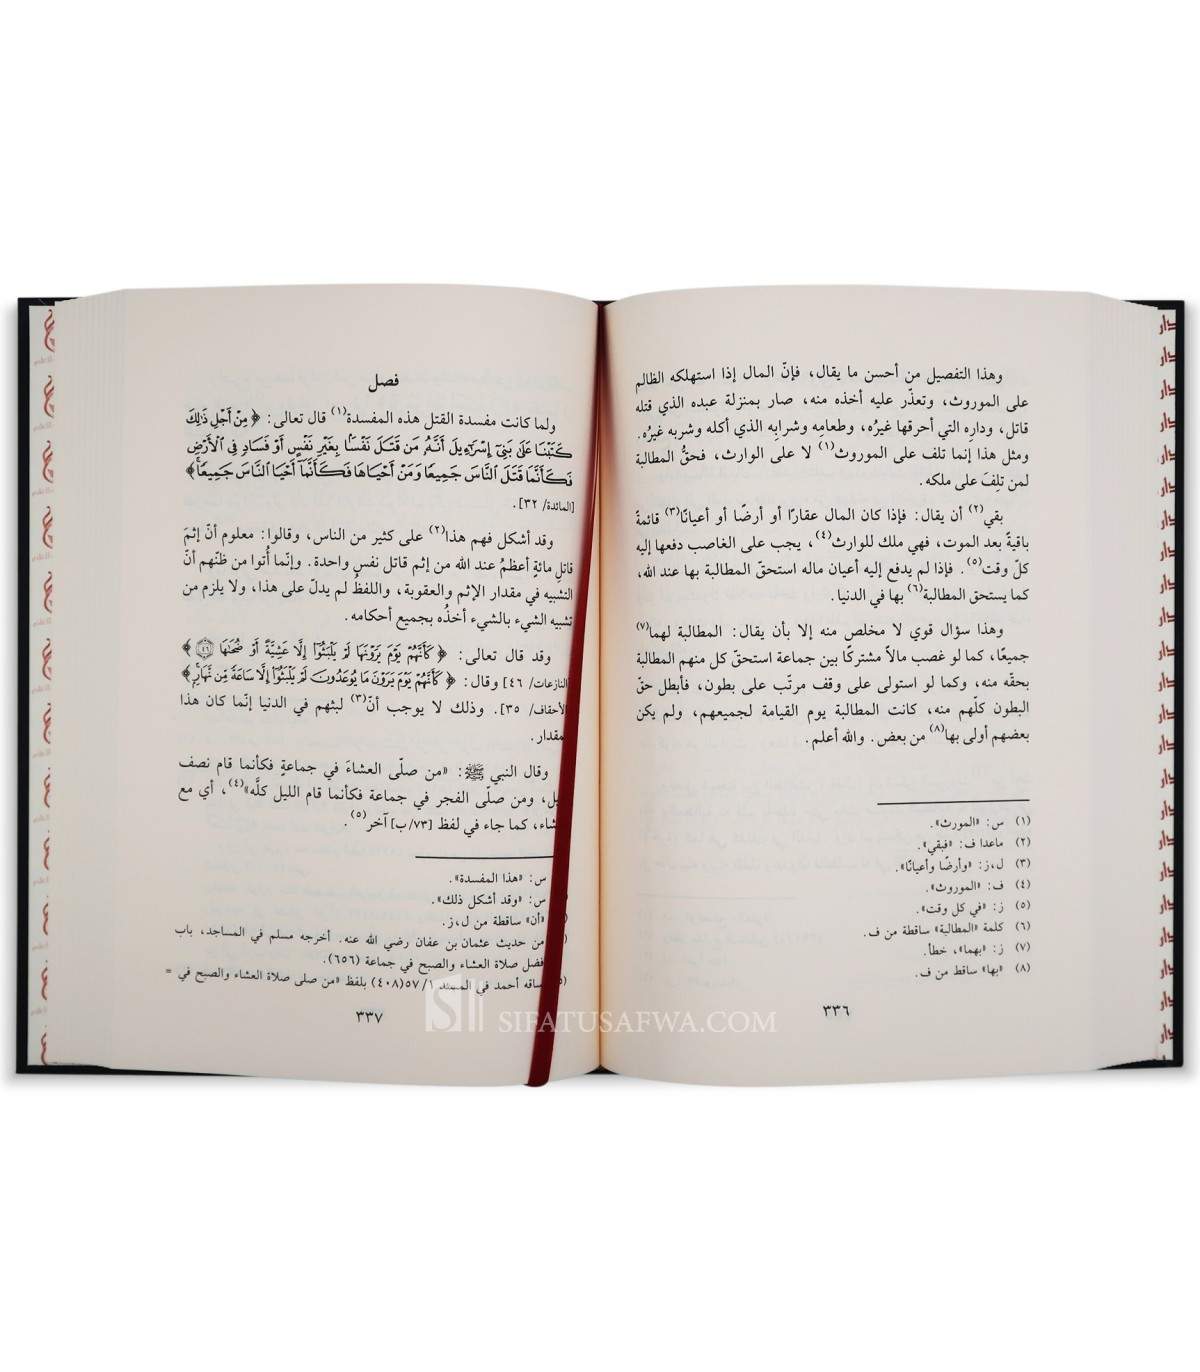 وهذا التفصيل من أحسن ما يقال، فإنّ المال إذا استهلكه الظالم
على الموروث، وتعذّر عليه أخذه منه، صار بمنزلة عبده الذي قتله
قاتل، ودارِه التي أحرقها غيرُه، وطعامِه وشرابِه الذي أكله وشربه غيرُه.
ومثل هذا إنما تلف على الموروث(١) لا على الوارث، فحقُّ المطالبة
لمن تلِفَ على ملكه.
بقي(٢) أن يقال: فإذا كان المال عقارًا أو أرضًا أو أعيانًا(٣) قائمةً
باقيةً بعد الموت، فهي ملك للوارث(٤)، يجب على الغاصب دفعها إليه
كلّ وقت(٥). فإذا لم يدفع إليه أعيان ماله استحقّ المطالبة بها عند الله،
كما يستحق المطالبة(٦) بها في الدنيا.
وهذا سؤال قوي لا مخلص منه إلا بأن يقال: المطالبة لهما(٧)
جميعًا، كما لو غصب مالاً مشتركًا بين جماعة استحقّ كل منهم المطالبة
بحقّه منه، وكما لو استولى على وقف مرتّب على بطون، فأبطل حقّ
البطون كلّهم منه، كانت المطالبة يوم القيامة لجميعهم، ولم يكن
بعضهم أولى بها(٨) من بعض. والله أعلم.
(١) س: «المورث».
(٢) ماعدا ف: «فبقي».
(٣) ل،ز: «وأرضًا وأعيانًا».
(٤) ف: «الموروث».
(٥) ز: «في كل وقت».
(٦) كلمة «المطالبة» ساقطة من ف.
(٧) ز: «بهما»، خطأ.
(٨) «بها» ساقط من ف.
٣٣٦
فصل
ولما كانت مفسدة القتل هذه المفسدة(١) قال تعالى: ﴿مِنْ أَجْلِ ذَٰلِكَ
كَتَبْنَا عَلَىٰ بَنِىٓ إِسْرَٰٓءِيلَ أَنَّهُۥ مَن قَتَلَ نَفْسًۢا بِغَيْرِ نَفْسٍ أَوْ فَسَادٍ فِى ٱلْأَرْضِ
فَكَأَنَّمَا قَتَلَ ٱلنَّاسَ جَمِيعًا وَمَنْ أَحْيَاهَا فَكَأَنَّمَآ أَحْيَا ٱلنَّاسَ جَمِيعًا﴾
[المائدة/ ٣٢].
وقد أشكل فهم هذا(٢) على كثير من الناس، وقالوا: معلوم أنّ إثمَ
قاتلِ مائةٍ أعظمُ عند الله من إثم قاتل نفسٍ واحدة. وإنّما أُتوا من ظنّهم أنّ
التشبيه في مقدار الإثم والعقوبة، واللفظُ لم يدلّ على هذا، ولا يلزم من
تشبيه الشيء بالشيء أخذُه بجميع أحكامه.
وقد قال تعالى: ﴿كَأَنَّهُمْ يَوْمَ يَرَوْنَهَا لَمْ يَلْبَثُوٓا۟ إِلَّا عَشِيَّةً أَوْ ضُحَىٰهَا ٤٦﴾
[النازعات/ ٤٦] وقال: ﴿كَأَنَّهُمْ يَوْمَ يَرَوْنَ مَا يُوعَدُونَ لَمْ يَلْبَثُوٓا۟ إِلَّا سَاعَةً مِّن نَّهَارٍ﴾
الأحقاف/ ٣٥]. وذلك لا يوجب أنّ(٣) لبثهم في الدنيا إنّما كان هذا
المقدار.
وقال النبي ﷺ: «من صلّى العشاءَ في جماعةٍ فكأنما قام نصف
ومن صلّى الفجر في جماعة فكأنما قام الليل كلَّه»(٤)، أي مع
كما جاء في لفظ [٧٣/ب] آخر(٥).
س: «هذا المفسدة».
س: «وقد أشكل ذلك».
«أن» ساقطة من ل،ز.
من حديث عثمان بن عفان رضي الله عنه. أخرجه مسلم في المساجد، باب
فضل صلاة العشاء والصبح في جماعة (٦٥٦).
ساقه أحمد في المسند ٥٧/١ (٤٠٨) بلفظ «من صلى صلاة العشاء والصبح في =
٣٣٧
SIFATUSAFWA.COM